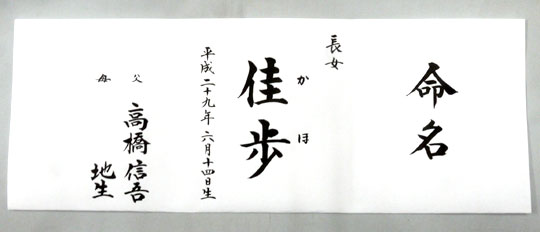 命名
長女
佳歩
かほ
平成二十九年六月十四日生
父 高橋信吾
母 地生